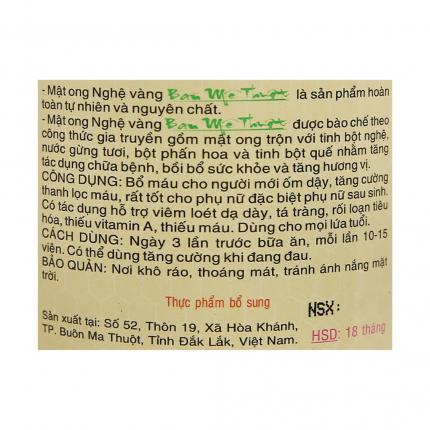 - Mật ong Nghệ vàng Ban Mê Thuột là sản phẩm hoàn
toàn tự nhiên và nguyên chất.
- Mật ong Nghệ vàng Ban Mê Thuột được bào chế theo
công thức gia truyền gồm mật ong trộn với tinh bột nghệ,
nước gừng tươi, bột phấn hoa và tinh bột quế nhằm tăng
tác dụng chữa bệnh, bồi bổ sức khỏe và tăng hương vị.
CÔNG DỤNG: Bổ máu cho người mới ốm dậy, tăng cường
thanh lọc máu, rất tốt cho phụ nữ đặc biệt phụ nữ sau sinh.
Có tác dụng hỗ trợ viêm loét dạ dày, tá tràng, rối loạn tiêu
hóa, thiếu vitamin A, thiếu máu. Dùng cho mọi lứa tuổi.
CÁCH DÙNG: Ngày 3 lần trước bữa ăn, mỗi lần 10-15
viên. Có thể dùng tăng cường khi đang đau.
BẢO QUẢN: Nơi khô ráo, thoáng mát, tránh ánh nắng mặt
trời.
Thực phẩm bổ sung
NSX:
Sản xuất tại: Số 52, Thôn 19, Xã Hòa Khánh,
TP. Buôn Ma Thuột, Tỉnh Đắk Lắk, Việt Nam.
HSD: 18 tháng